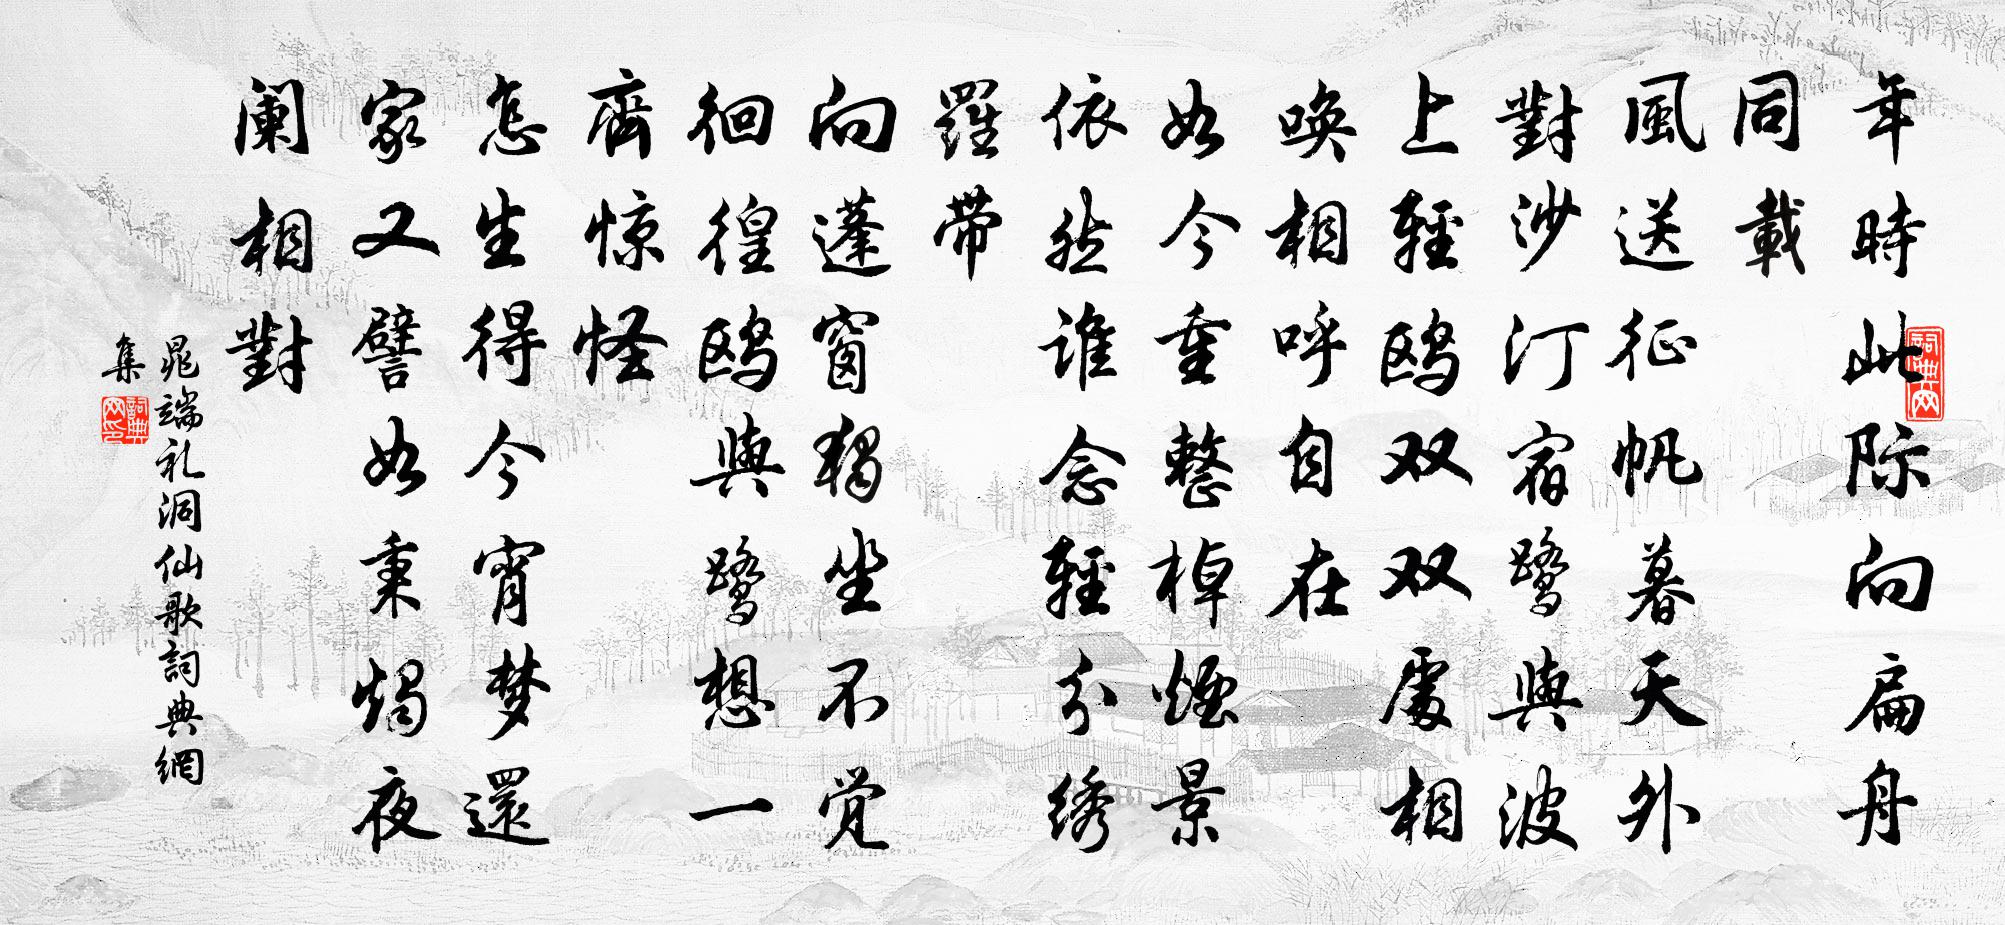 年時此际向扁舟
同載
風送征帆暮天外
對沙汀宿鹭與波
上輕鸥双双處相
唤相呼自在
如今重整棹煙景
依然谁念輕分绣
羅带
向蓬窗獨坐不觉
徊徨鸥與鹭想一
齊惊怪
怎生得今宵梦還
家又譬如秉燭夜
阑相對
晁端礼洞仙歌詞典網
集
詞典网
詞典网印